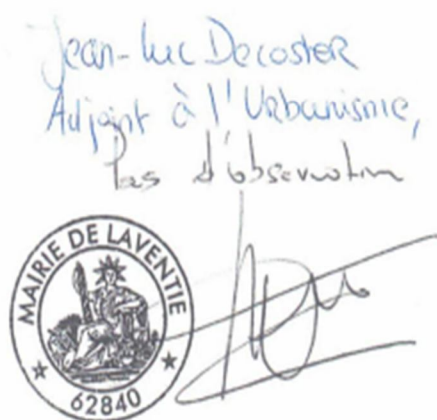 Jean-Luc Decoster
Adjoint à l'Urbanisme,
Pas d'observation
MAIRIE DE LAVENTIE
62840